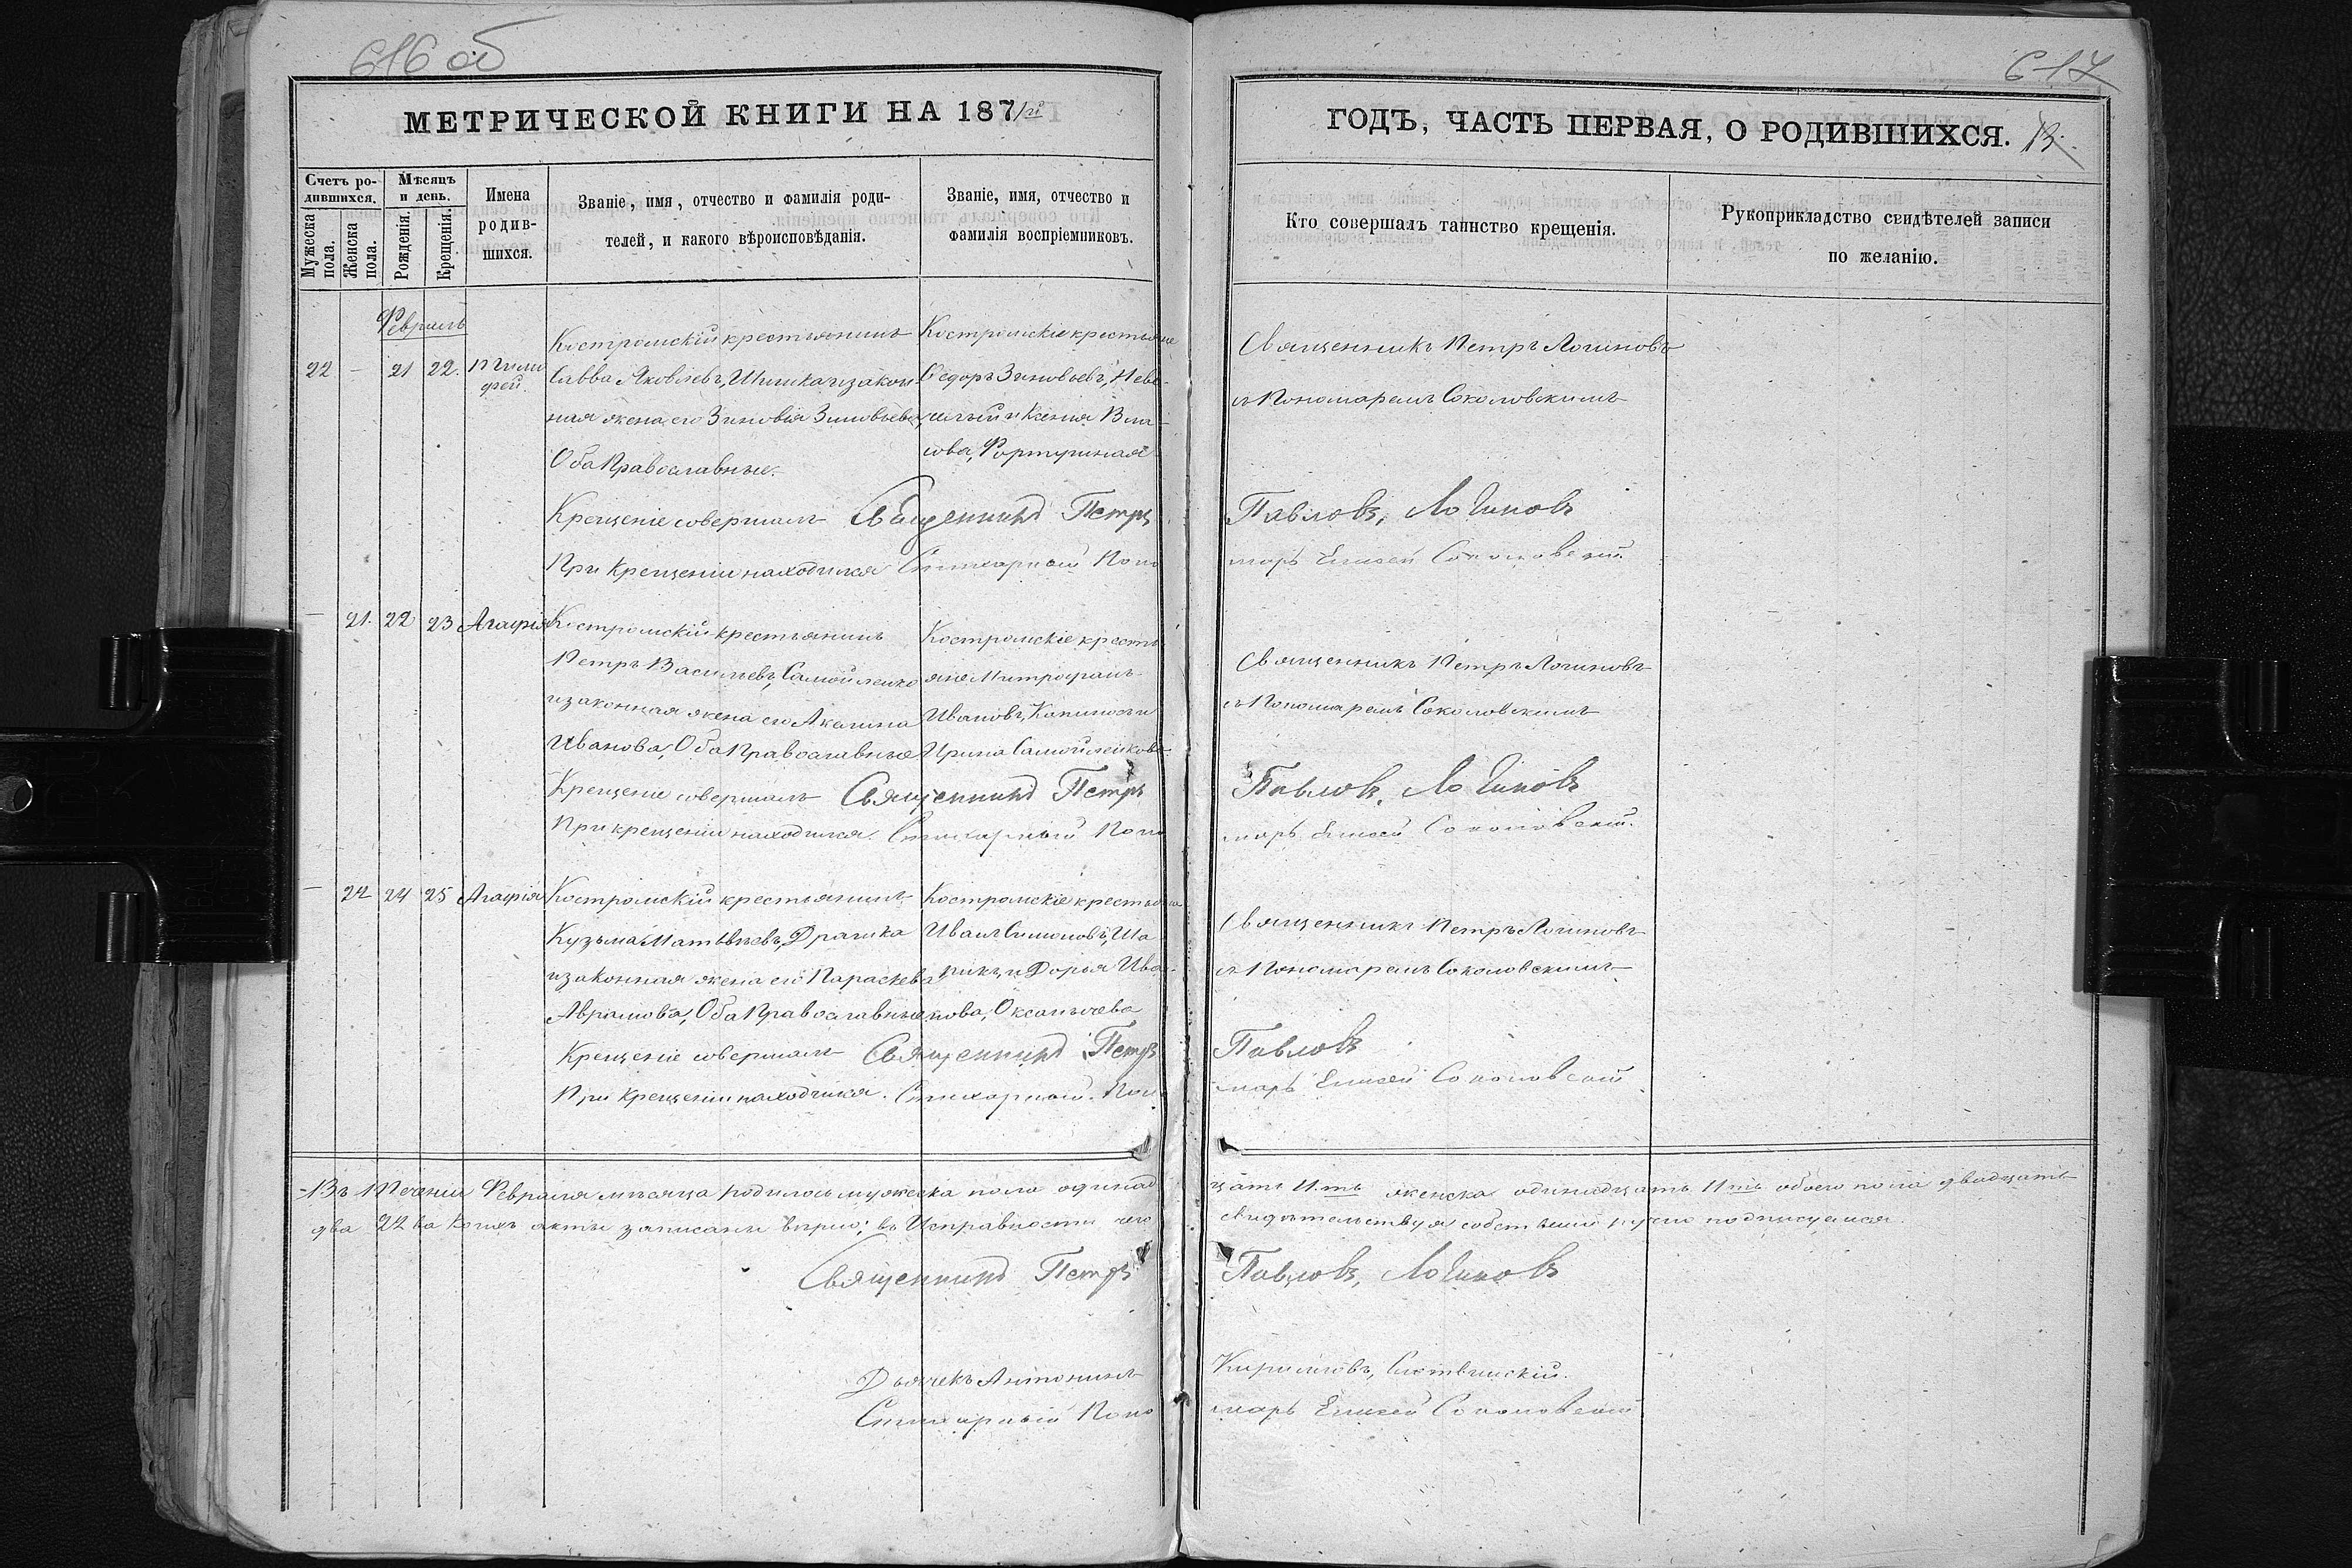 616 об
МЕТРИЧЕСКОЙ КНИГИ НА 1871й
Счетъ ро-
дившихся.
Мѣсяцъ
и день.
Мужеска
пола.
Женска
пола.
Рожденія.
Крещенія.
Имена
родив-
шихся.
Званіе, имя, отчество и фамилія роди-
телей, и какого вѣроисповѣданія.
Званіе, имя, отчество и
фамилія воспріемниковъ.
Февраль
22 - 21 22. Тимо
фей.
Костромскій крестьянинъ
Савва Яковлевъ, Шишка и закон-
ная жена его Зиновія Зиновьева,
Оба Православные.
Костромскіе крестьяне
Федоръ Зиновьевъ,
и Ксенія Вла-
сова,
Крещеніе совершалъ Священникъ Петръ
При Крещеніи находился Стихарный Поно
- 21. 22 23 Агафія
Костромскій крестьянинъ
Петръ Васильевъ, Самойленко
и законная жена его Акилина
Иванова, Оба Православные
Костромскіе кресть
яне Митрофанъ
Ивановъ, Капиносъ и
Ирина Самойленкова
Крещеніе совершалъ Священникъ Петръ
При крещеніи находился. Стихарный Поно
- 22 24 25 Агафія
Костромскій крестьянинъ
Кузьма Матвѣевъ, Драчика
и законная жена его Параскева
Аврамова, Оба Православные
Костромскіе крестьяне
Иванъ Симоновъ, Ша
рикъ, и Дорья Ива-
нова,
Крещеніе совершалъ Священникъ Петръ
При Крещеніи находился. Стихарный. Поно
-Въ Теченіи Февраля мѣсяца родилось мужеска пола одинад
два 22 ва коихъ акты записаны вѣрно; въ Исправности чего
Священникъ Петръ
Дьячекъ Антонинъ
Стихарный Поно
617
ГОДЪ, ЧАСТЬ ПЕРВАЯ, О РОДИВШИХСЯ. 13.
Кто совершалъ таинство крещенія.
Рукоприкладство свидѣтелей записи
по желанію.
Священникъ Петръ Логиновъ
съ Пономаремъ Соколовскимъ
Павловъ, Логиновъ
марь Елисей Соколовскій
Священникъ Петръ Логиновъ
съ Пономаремъ Соколовскимъ
Павловъ, Логиновъ
марь Елисей Соколовскій.
Священникъ Петръ Логиновъ
съ Пономаремъ Соколовскимъ
Павловъ
марь Елисей Соколовскій
цать 11.ть женска одинадцать 11ть обоего пола двадцать
свидѣтельствуя собственно ручно подписуемся
Павловъ, Логиновъ
Кириловъ,
марь Елисей Соколовскій